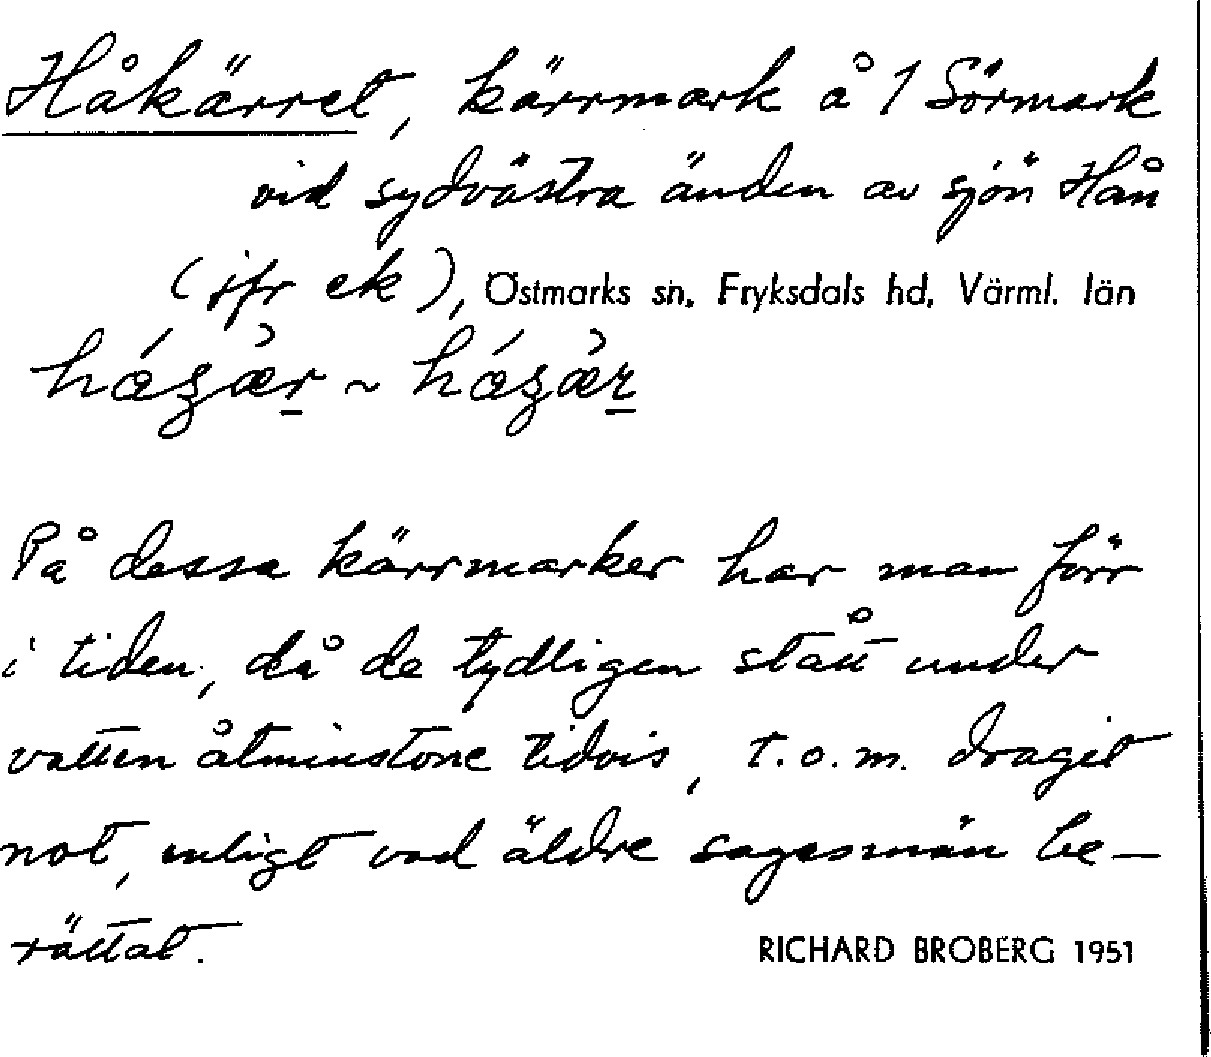 Håkärret, kärrmark å 1 Sörmark
vid sydvästra änden av sjön Hån
(jfr ek), Östmarks sn, Fryksdals hd, Värml. län
På dessa kärrmarker har man förr
i tiden, då de tydligen stått under
vatten åtminstone tidvis, t.o.m. dragit
not, enligt vad äldre sagesmän be-
rättat.
RICHARD BROBERG 1951